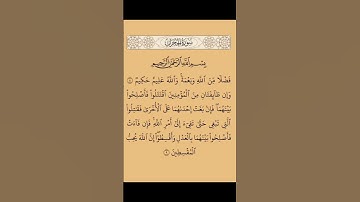 سورة الحجرات
بِسْمِ اللَّهِ الرَّحْمَٰنِ الرَّحِيمِ
فَضْلًا مِّنَ اللَّهِ وَنِعْمَةً ۚ وَاللَّهُ عَلِيمٌ حَكِيمٌ ٨
وَإِن طَائِفَتَانِ مِنَ الْمُؤْمِنِينَ اقْتَتَلُوا فَأَصْلِحُوا
بَيْنَهُمَا ۖ فَإِن بَغَتْ إِحْدَاهُمَا عَلَى الْأُخْرَىٰ فَقَاتِلُوا
الَّتِي تَبْغِي حَتَّىٰ تَفِيءَ إِلَىٰ أَمْرِ اللَّهِ ۚ فَإِن فَاءَتْ
فَأَصْلِحُوا بَيْنَهُمَا بِالْعَدْلِ وَأَقْسِطُوا ۖ إِنَّ اللَّهَ يُحِبُّ
الْمُقْسِطِينَ ٩